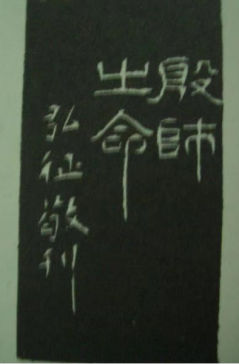 殷師
之命
弘征敬刊